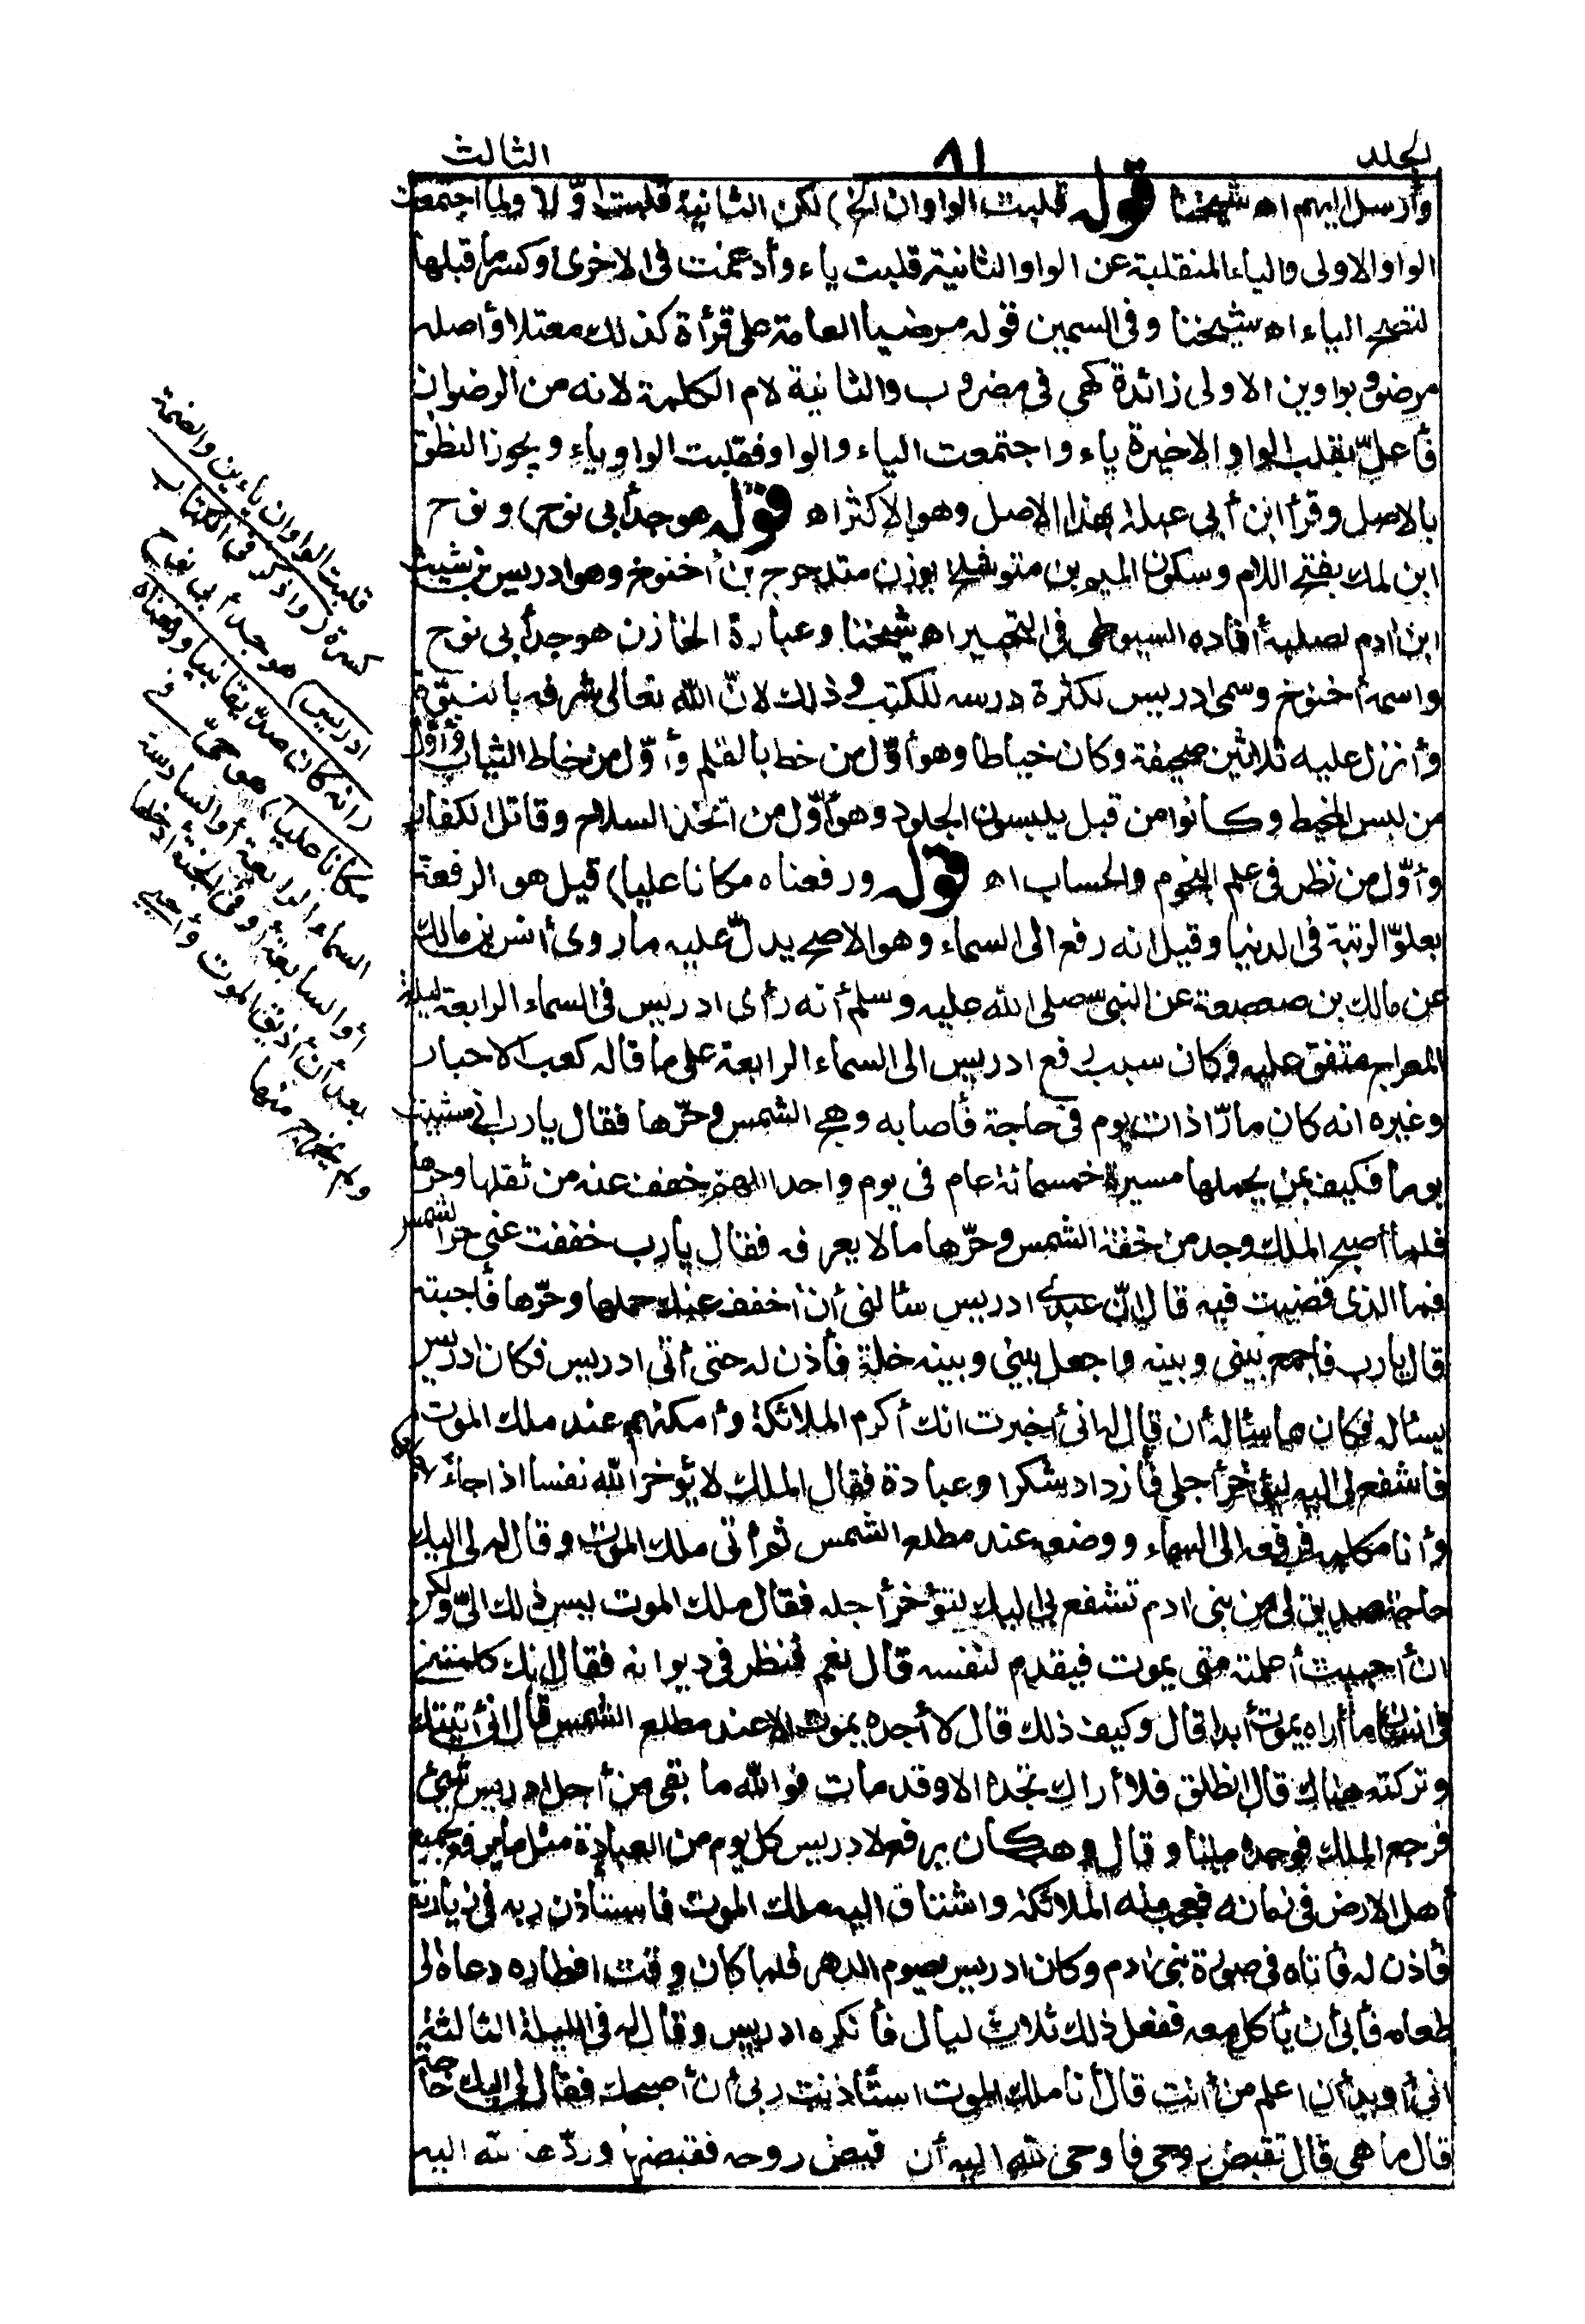 الجلد ٨١ الثالث
وأرسل اليهم اه شيخنا قوله قلبت الواوان الخ) لكن الثانية قلبت أوّلا ولما اجتمعت
الواو الاولى والياء المنقلبة عن الواو الثانية قلبت ياء وأدغمت فى الاخرى وكسر ما قبلها
لتصح الياء اه شيخنا وفى السمين قوله مرضيا العامة على قرأة كذلك معتلا وأصله
مرضوو بواوين الاولى زائدة كهى فى مضروب والثانية لام الكلمة لانه من الرضوان
فأعلّ بقلب الواو الاخيرة ياء واجتمعت الياء والواو فقلبت الواو ياء ويجوز النطق
بالاصل وقرأ ابن أبى عبلة بهذا الاصل وهو الاكثر اه قوله هو جدأبى نوح) ونوح
ابن لمك بفتح اللام وسكون الميم بن متوشلخ بوزن متدحرج بن أخنوخ وهو ادريس بن شيث
ابن ادم لصلبه أفاده السيوطى فى التحبير اه شيخنا وعبارة الخازن هو جدأبى نوح
واسمه أخنوخ وسمى ادريس لكثرة درسه للكتب وذلك لانّ الله تعالى شرفه بالنبوّة
وأنزل عليه ثلاثين صحيفة وكان خياطا وهو أوّل من خط بالقلم وأوّل من خاط الثياب وأوّل
من لبس المخيط وكانوا من قبل يلبسون الجلود وهو أوّل من اتخذ السلاح وقاتل الكفار
وأوّل من نظر فى علم النجوم والحساب اه قوله ورفعناه مكانا عليا) قيل هو الرفعة
بعلوّ الرتبة فى الدنيا وقيل انه رفع الى السماء وهو الاصح يدلّ عليه ما روى أنس بن مالك
عن مالك بن صعصعة عن النبى صلى الله عليه وسلم أنه رأى ادريس فى السماء الرابعة ليلة
المعراج متفق عليه وكان سبب رفع ادريس الى السماء الرابعة على ما قاله كعب الاحبار
وغيره انه كان مارّا ذات يوم فى حاجة فأصابه وهج الشمس وحرّها فقال يارب انى مشيت
يوما فكيف بمن يحملها مسيرة خمسمائة عام فى يوم واحد اللهم خفف عنه من ثقلها وحرها
فلما أصبح الملك وجد من خفة الشمس وحرّها ما لا يعرفه فقال يارب خففت عنى حرّ الشمس
فما الذى قضيت فيه قال انّ عبدى ادريس سألنى أن أخفف عنك حملها وحرّها فأجبته
قال يارب فاجمع بينى وبينه واجعل بينى وبينه خلة فأذن له حتى أتى ادريس فكان ادريس
يسئاله فكان مما سأله أن قال له انى أخبرت انك أكرم الملائكة وأمكنهم عند ملك الموت
فاشفع لى اليه ليؤخر أجلى فأزداد شكرا وعبادة فقال الملك لا يؤخر الله نفسا اذا جاء أجلها
وأنا مكلمه فرفعه الى السماء ووضعه عند مطلع الشمس ثم أتى ملك الموت وقال له لى اليك
حاجة صديق لى من بنى ادم تشفع بى اليك لتؤخر أجله فقال ملك الموت ليس ذلك الىّ ولكن
ان أحببت أعلمته متى يموت فيقدم لنفسه قال نعم فنظر فى ديوانه فقال انك كلمتنى
فى انسان ما أراه يموت أبدا قال وكيف ذلك قال لا أجده يموت الا عند مطلع الشمس قال انى أتيتك
وتركته هناك قال انطلق فلا أراك تجده الا وقد مات فوالله ما بقى من أجل ادريس شيئ
فرجع الملك فوجده ميتا وقال وهب كان يرفع لادريس كل يوم من العبادة مثل ما يرفع لجميع
أهل الارض فى زمانه فعجب منه الملائكة واشتاق اليه ملك الموت فاستأذن ربه فى زيارته
فأذن له فأتاه فى صورة بنى ادم وكان ادريس يصوم الدهر فلما كان وقت افطاره دعاه الى
طعامه فأبى أن يأكل معه ففعل ذلك ثلاث ليال فأنكره ادريس وقال له فى الليلة الثالثة
انى أريد أن اعلم من أنت قال أنا ملك الموت استأذنت ربى أن أصحبك فقال لى اليك حاجة
قال ما هى قال تقبض روحى فاوحى الله اليه أن قبض روحه فقبضها وردّها الله اليه
قلبت الواوان ياءين والضمة
كسرة (واذكر فى الكتاب
ادريس) هو جدأبى نوح
(انه كان صدّيقا نبيا ورفعناه
مكانا عليا) هو حىّ فى
السماء الرابعة أو السادسة
أو السابعة أو فى الجنة أدخلها
بعد أن أذيق الموت وأحيى
ولم يخرج منها